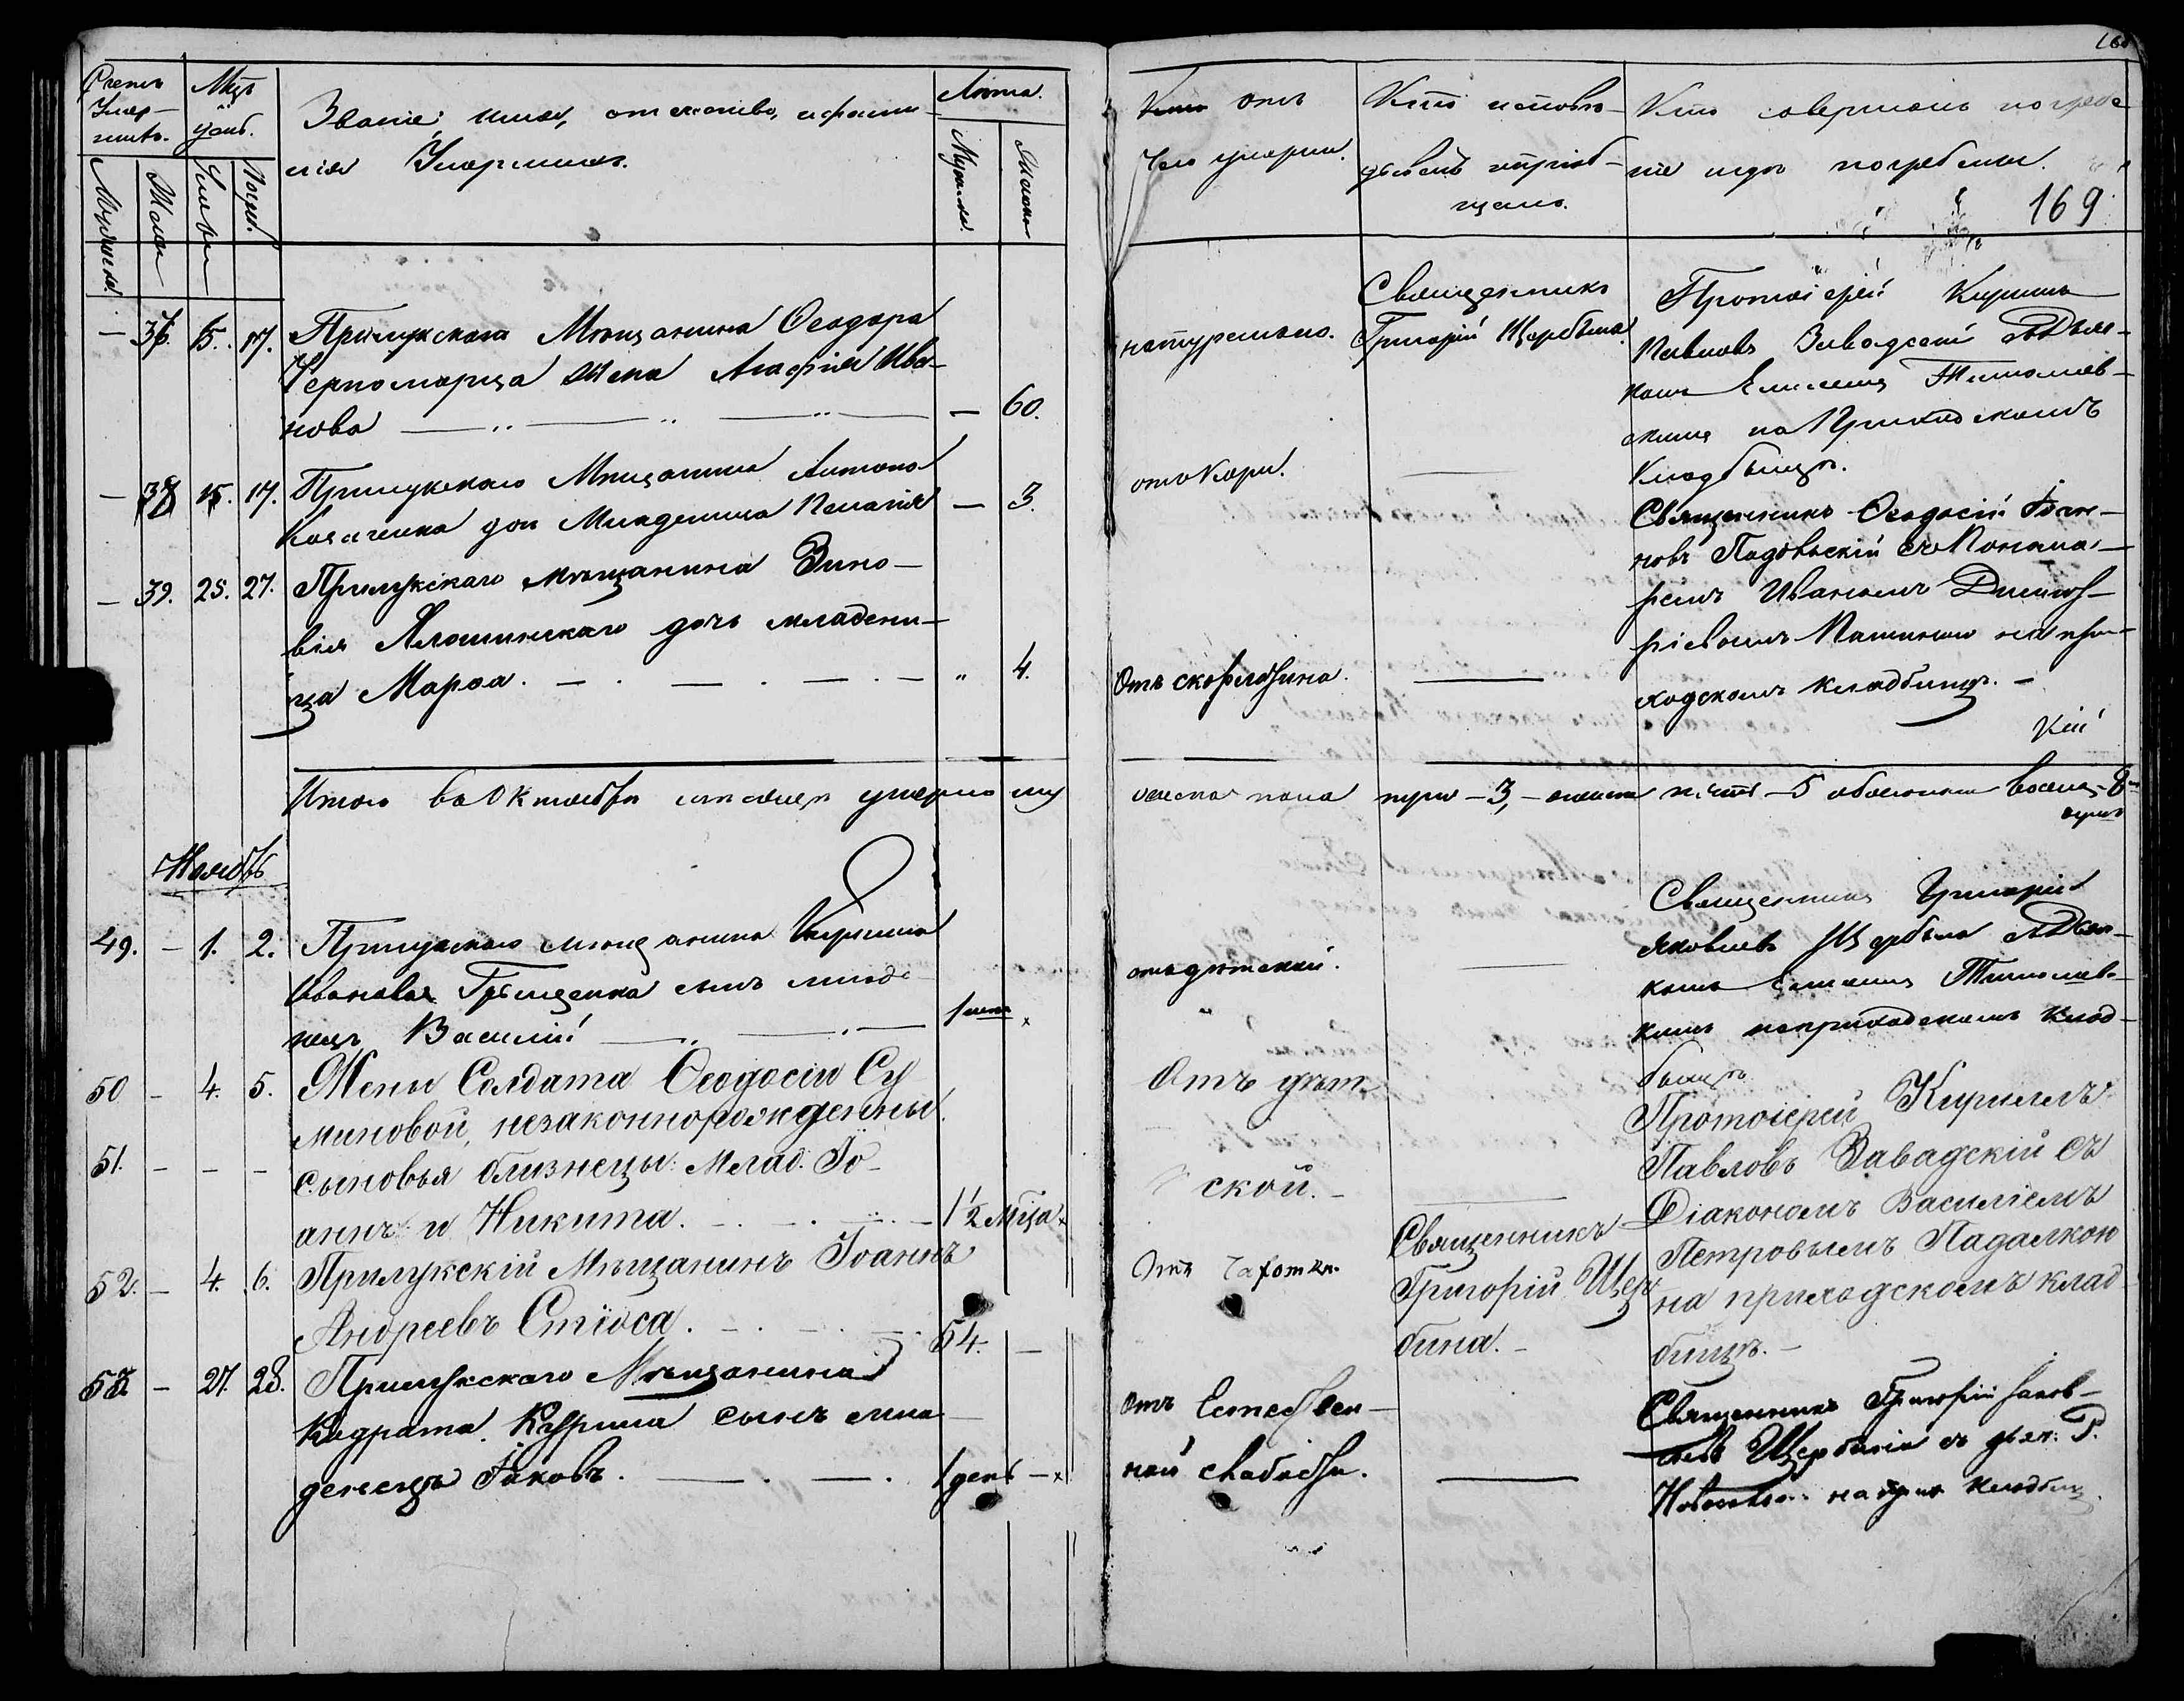 168
Счетъ Умер-
шихъ.
Мцъ
и день.
Званіе, имя, отчество, и фами-
лія Умершихъ.
Лѣта.
Отъ
чего умерли.
Кто исповѣ-
дывалъ и пріоб-
щалъ.
Кто совершалъ погребе
ніе и гдѣ погребены.
169
Мужеска
Женска
Смерти
Погреб.
Мужеска
Женска
— 37. 15. 17. Прилукскаго Мѣщанина Ѳеодора
Черноморца жена Агафія Ива-
нова — 60.
натурально.
Священникъ
Григорій Щербина
Протоіерей Кириллъ
Павловъ Завадскій съ Дья-
комъ Тимолаев-
скимъ на Приходскомъ
Кладбищѣ.
— 38 15. 17. Прилукскаго Мѣщанина Антона
Козаченка дочь Младеница Пелагія — 3.
отъ Кори.
— 39. 25. 27. Прилукскаго мѣщанина Зино-
вія Ялошинскаго дочь младени-
ца Марѳа. — „ 4.
Отъ скарлатина.
Священникъ Ѳеодосій Іоан-
новъ Падольскій съ Понома-
ремъ Иваномъ Димит-
ріевымъ на при-
ходскомъ кладбищѣ. —
Итого въ Октябрѣ мѣсяцѣ умерло му
жеска пола — 3, — женска пять — 5 обоего восемь 8
душъ
Ноябрь
49. — 1. 2. Прилукскаго мѣщанина Кирилла
Иванова Грищенка сынъ младе
нецъ Василій
отъ дѣтской.
Священникъ Григорій
Яковлевъ Щербина съ Дья-
комъ Тимолаев-
кимъ на приходскомъ клад-
бищѣ
50 — 4. 5. Жены Солдата Ѳеодосіи Су
миновой, незаконнорожденны
51. — — — сыновья близнецы: Млад. Іо-
аннъ и Никита. — 1½ мѣца
Отъ дѣт-
ской. —
Протоіерей Кириллъ
Павловъ Завадскій съ
Діакономъ Василіемъ
Петровымъ Падалкою
на приходскомъ клад
бищѣ. —
52. — 4. 6. Прилукскій Мѣщанинъ Іоаннъ
Андреевъ Стіоса. — 54. —
Отъ Чахотки.
Священникъ
Григорій Щер
бина. —
53 — 27. 28. Прилукскаго Мѣщанина
Кодрата Курила сынъ мла
денецъ Іаковъ. — 1 день —
Отъ Естествен-
ной слабости.
Священникъ Григорій Іаков-
левъ Щербина съ дьяк: Т.
на прих кладбищ.